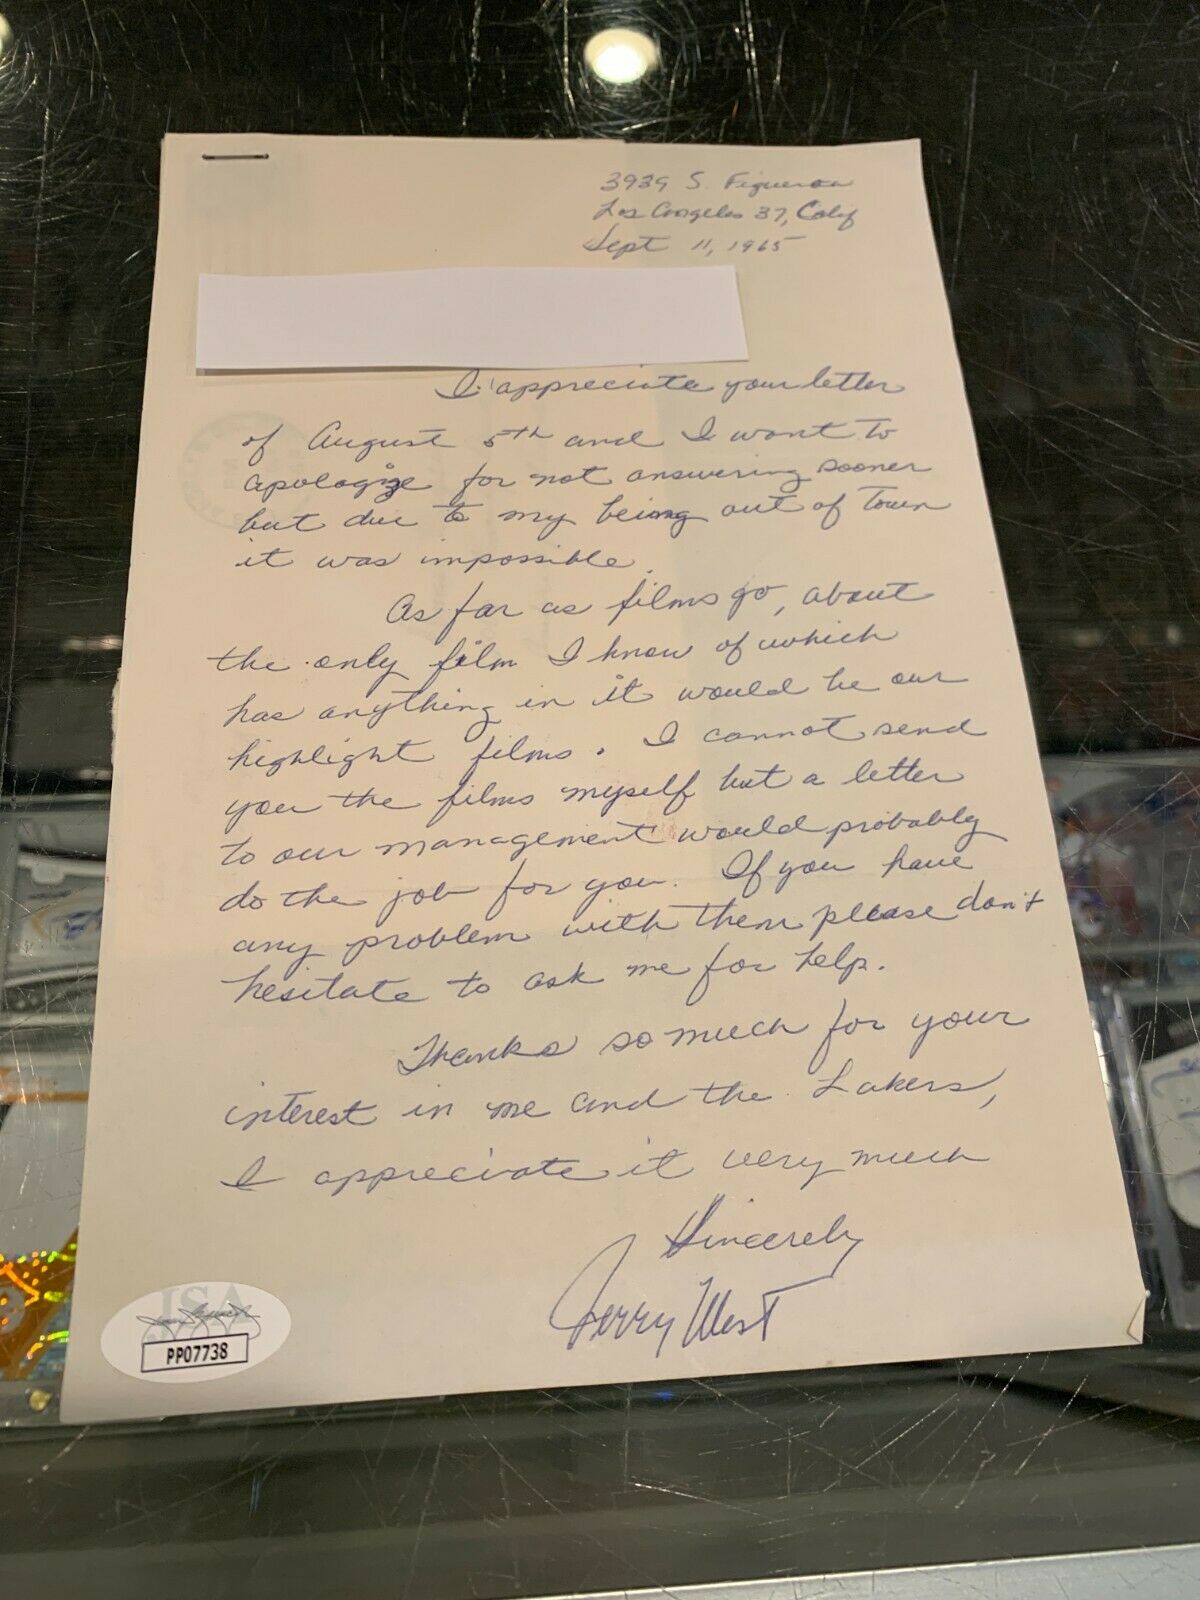 3939 S. Figueroa
Los Angeles 37, Calif
Sept 11, 1965
I appreciate your letter
of August 5th and I want to
apologize for not answering sooner
but due to my being out of town
it was impossible.
As far as films go, about
the only film I know of which
has anything in it would be our
highlight films. I cannot send
you the films myself but a letter
to our management would probably
do the job for you. If you have
any problem with them please don't
hesitate to ask me for help.
Thanks so much for your
interest in me and the Lakers,
I appreciate it very much
Sincerely
Jerry West
JSA
PP07738